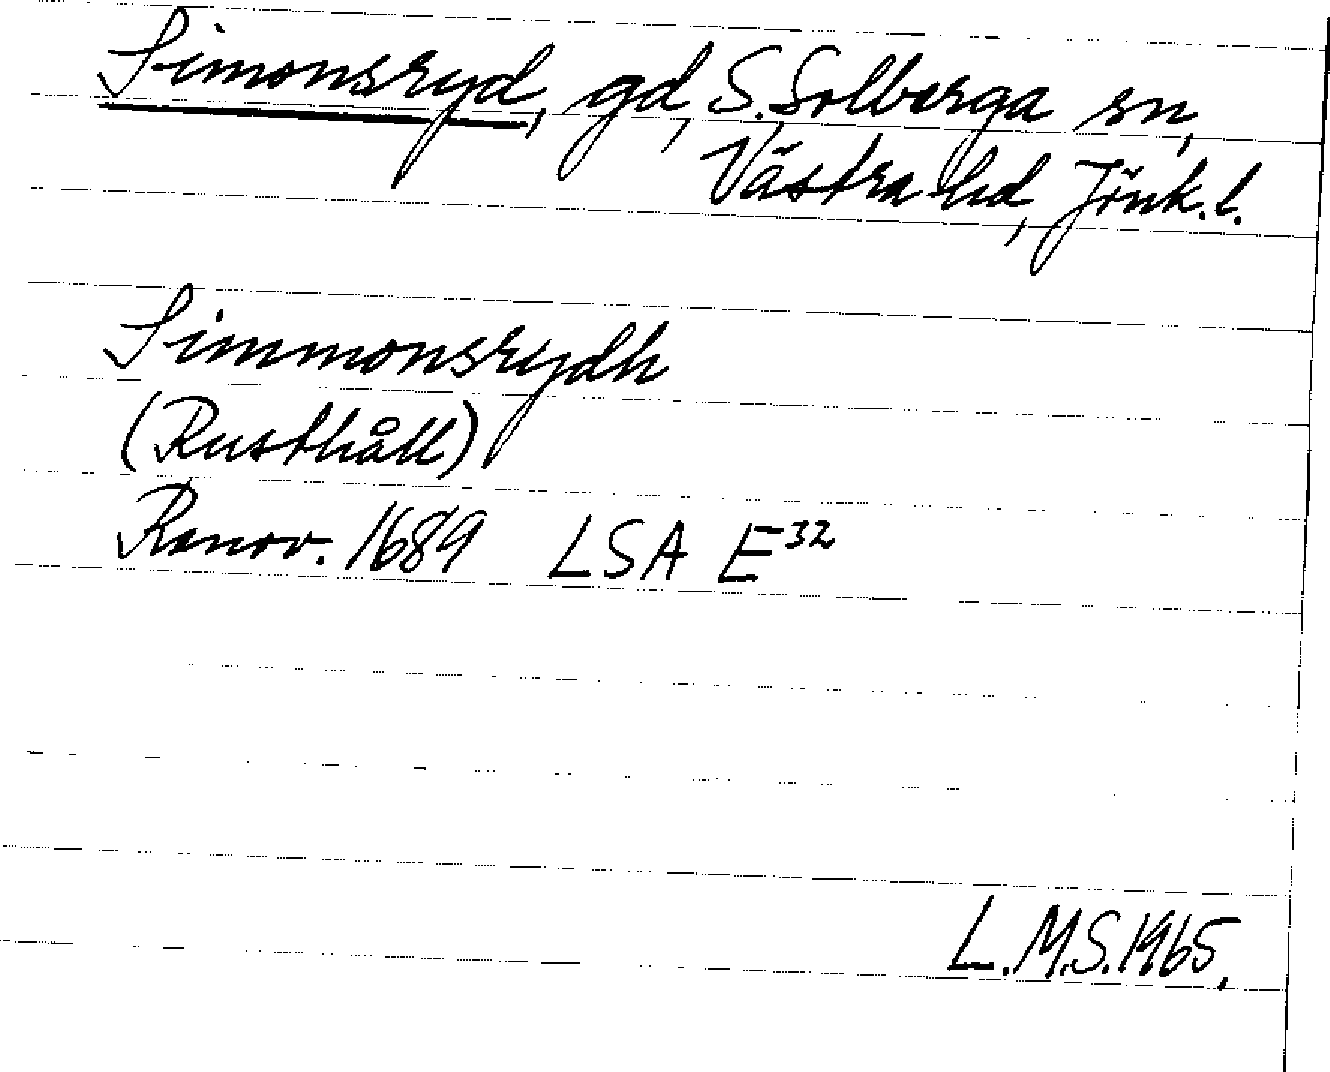 Simonsryd, gd, S. Solberga sn,
Västra hd, Jönk. l.
Simmonsrydh
(Rusthåll)
Renov. 1689 LSA E³²
L.M.S. 1965.